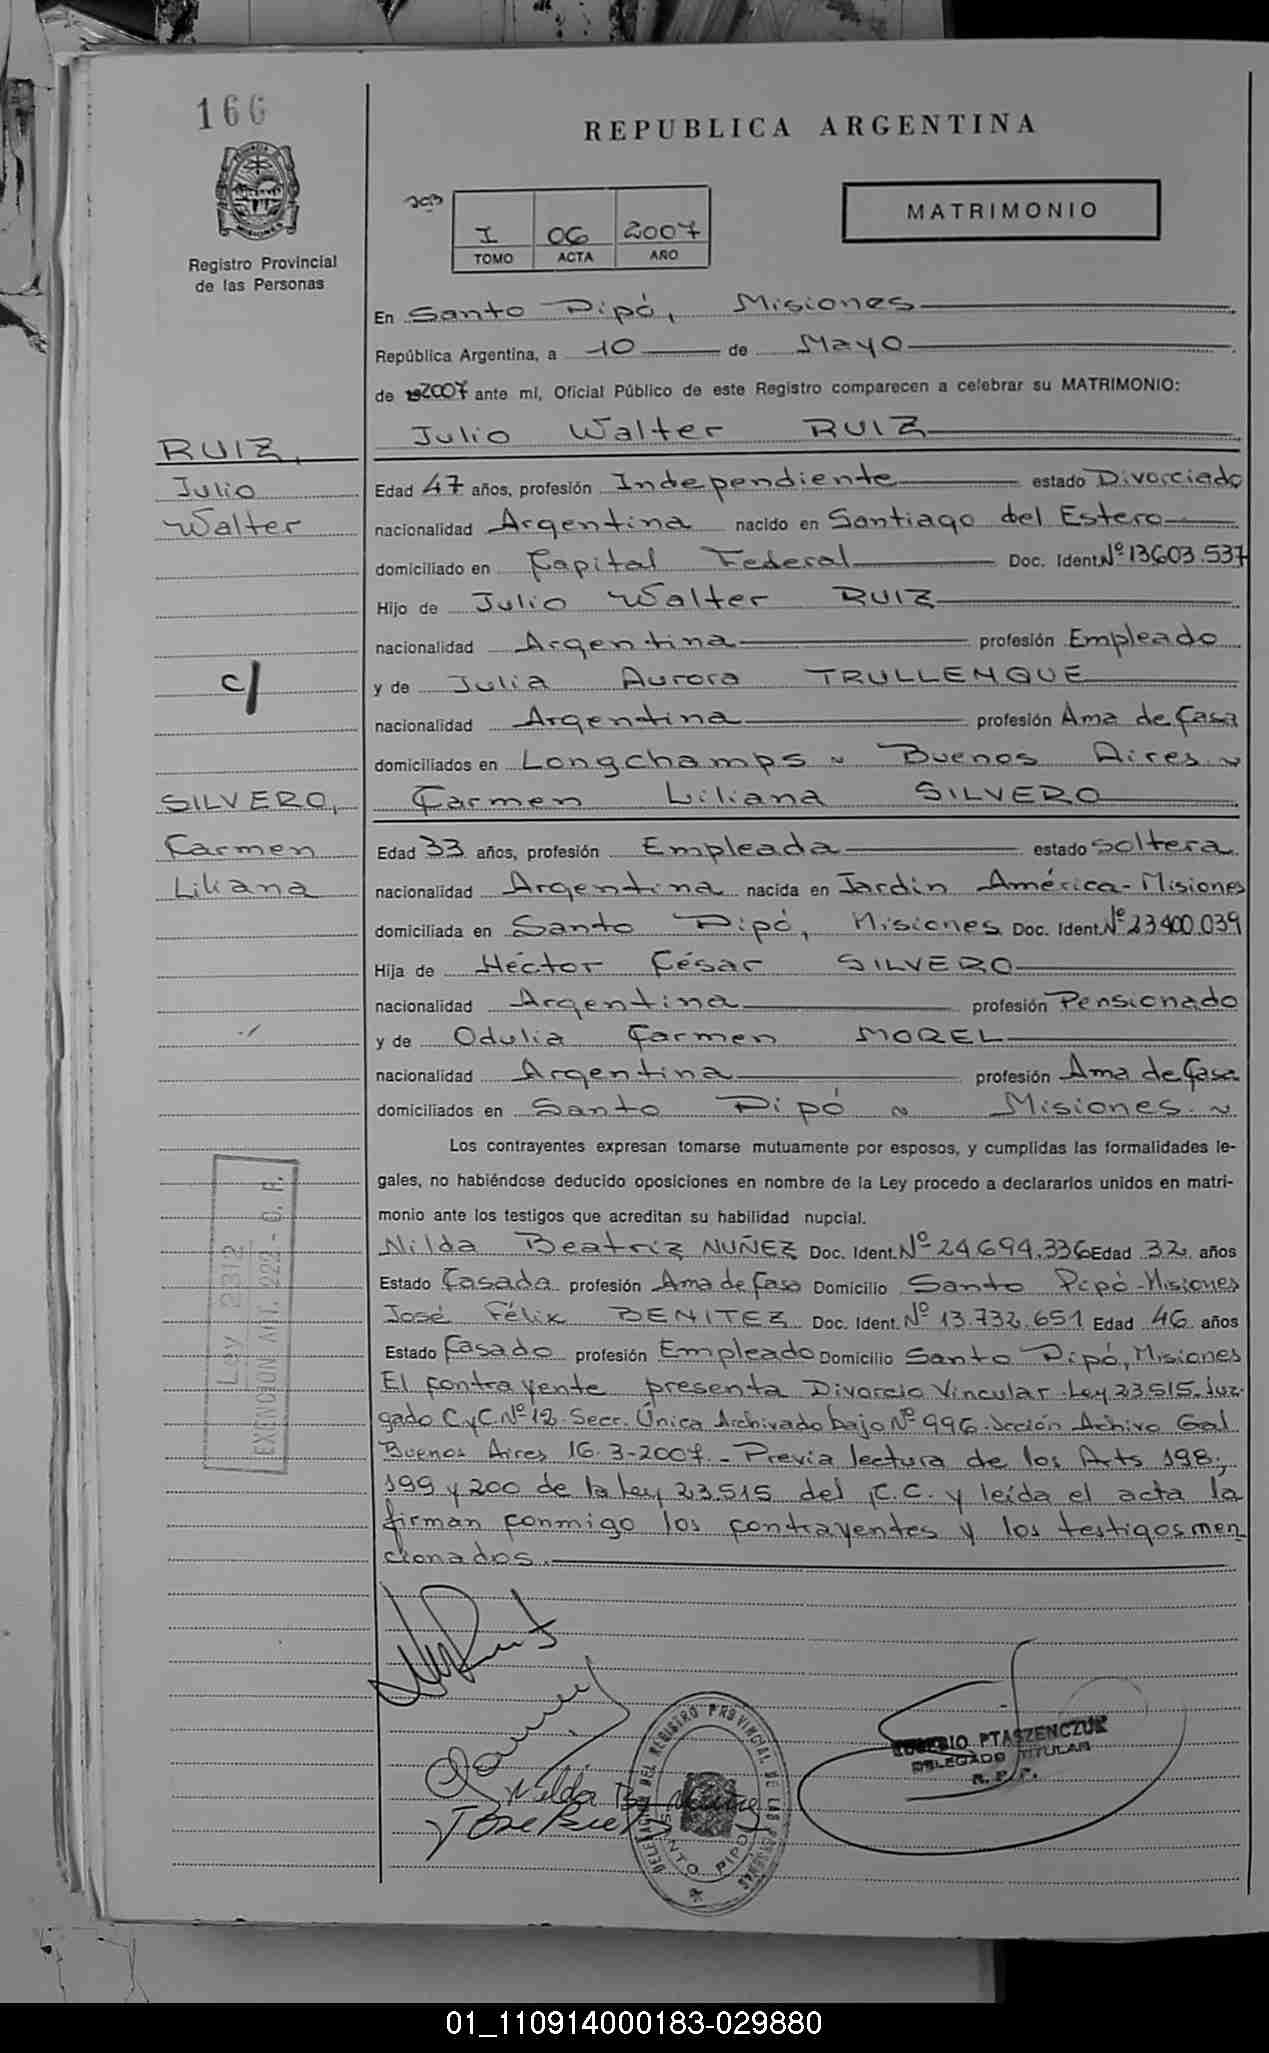 166
REPUBLICA ARGENTINA
MATRIMONIO
I 06 2007
TOMO ACTA AÑO
Registro Provincial
de las Personas
En Santo Pipó, Misiones
República Argentina, a 10 de Mayo
de 2007 ante mí, Oficial Público de este Registro comparecen a celebrar su MATRIMONIO:
Julio Walter RUIZ
RUIZ,
Julio
Walter
c/
SILVERO,
Carmen
Liliana
Edad 47 años, profesión Independiente estado Divorciado
nacionalidad Argentina nacido en Santiago del Estero
domiciliado en Capital Federal Doc. Ident. Nº 13.603.537
Hijo de Julio Walter RUIZ
nacionalidad Argentina profesión Empleado
y de Julia Aurora TRULLENQUE
nacionalidad Argentina profesión Ama de Casa
domiciliados en Longchamps ~ Buenos Aires ~
Carmen Liliana SILVERO
Edad 33 años, profesión Empleada estado soltera
nacionalidad Argentina nacida en Jardín América - Misiones
domiciliada en Santo Pipó, Misiones Doc. Ident. Nº 23.400.039
Hija de Héctor César SILVERO
nacionalidad Argentina profesión Pensionado
y de Odulia Carmen MOREL
nacionalidad Argentina profesión Ama de Casa
domiciliados en Santo Pipó ~ Misiones. ~
Los contrayentes expresan tomarse mutuamente por esposos, y cumplidas las formalidades le-
gales, no habiéndose deducido oposiciones en nombre de la Ley procedo a declararlos unidos en matri-
monio ante los testigos que acreditan su habilidad nupcial.
Nilda Beatriz NUÑEZ Doc. Ident. Nº 24.694.336 Edad 32 años
Estado Casada profesión Ama de Casa Domicilio Santo Pipó - Misiones
José Félix BENITEZ Doc. Ident. Nº 13.732.651 Edad 46 años
Estado Casado profesión Empleado Domicilio Santo Pipó, Misiones
El contrayente presenta Divorcio Vincular Ley 23.515. Juz-
gado C y C. Nº 12. Secr. Única Archivado bajo Nº 996. Sección Achivo Gral
Buenos Aires 16-3-2007. - Previa lectura de los Arts 198,
199 y 200 de la ley 23515 del C.C. y leída el acta la
firman conmigo los contrayentes y los testigos men
cionados.
Ley 2312
EXENCION ART. 222 - C. F.
Nilda B. Nuñez
DELEGACIÓN DEL REGISTRO PROVINCIAL DE LAS PERSONAS
SANTO PIPO
EUSEBIO PTASZENCZUK
DELEGADO TITULAR
R. P. P.
01_110914000183-029880